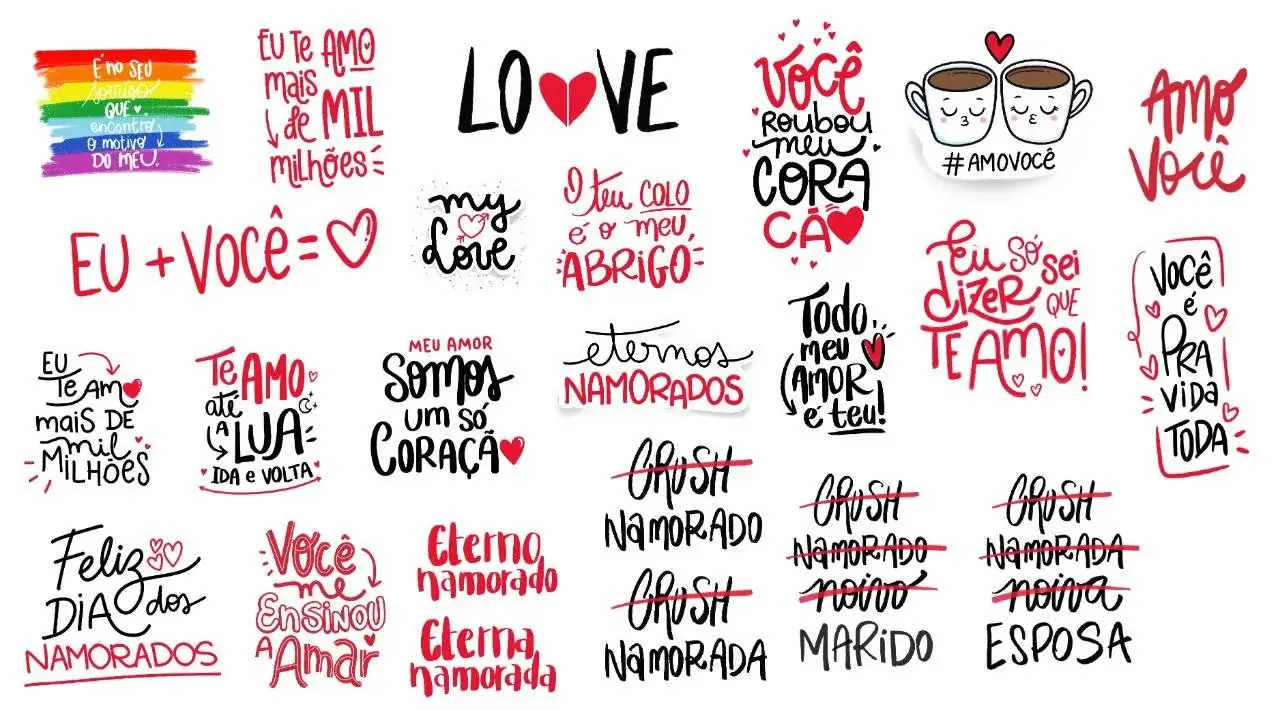 É NO SEU
sorriso
QUE
encontro
O motivo
DO MEU.
EU TE AMO
mais
de MIL
milhões
LOVE
VOCÊ
ROUBOU
meu
CORA
ÇÃ
#AMOVOCÊ
AMO
VOCÊ
EU + VOCÊ =
my
Love
O teu COLO
é o meu
ABRIGO
Eu SÓ SEI
DIZER QUE
TE AMO!
VOCÊ
é
PRA
VIDA
TODA
EU
Te Am
mais DE
mil
MILHÕES
Te AMO
até
A LUA
IDA e VOLTA
MEU AMOR
SOMOS
um só
CORAÇÃ
eternos
NAMORADOS
Todo
meu
AMOR
é teu!
Feliz
DIA dos
NAMORADOS
Você
me
ENSINOU
A Amar
Eterno
namorado
Eterna
namorada
CRUSH
NAMORADO
CRUSH
NAMORADA
CRUSH
NAMORADO
noivo
MARIDO
CRUSH
NAMORADA
noiva
ESPOSA